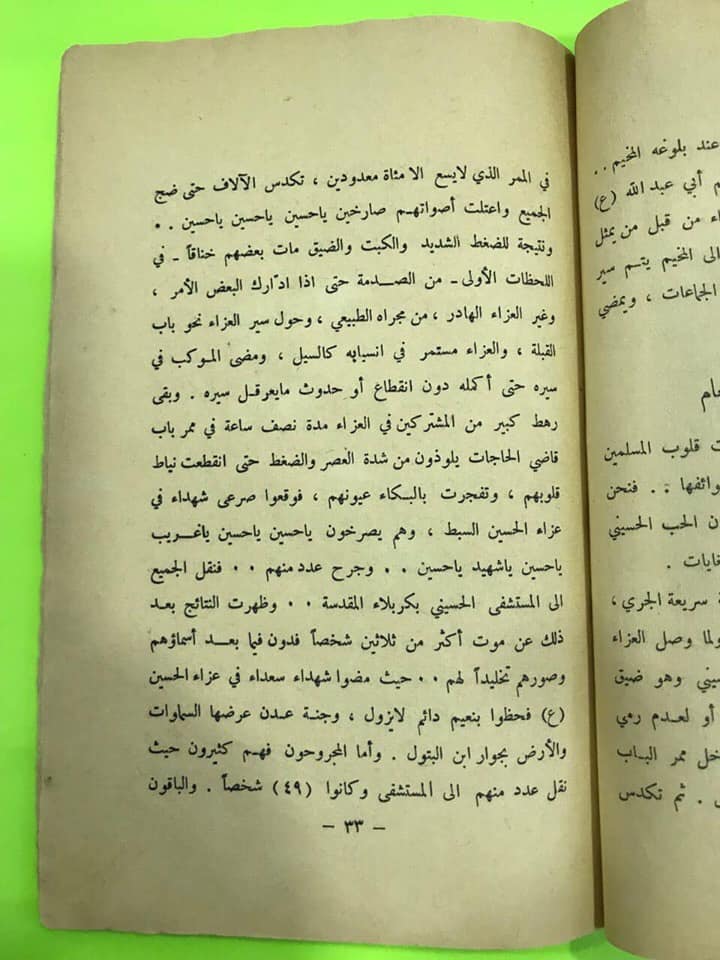 عند بلوغه المخيم . .
م أبي عبد الله (ع)
اء من قبل من يمثل
الى المخيم يتم سير
الجماعات ، ويمضي
قلوب المسلمين
فنحن
الحب الحسيني
سريعة الجري ،
ولما وصل العزاء
وهو ضيق
أو لعدم رمي
ممر الباب
. ثم تكدس
في الممر الذي لايسع الا مئاة معدودين ، تكدس الآلاف حتى ضج
الجميع واعتلت أصواتهم صارخين ياحسين ياحسين ياحسين . .
ونتيجة للضغط الشديد والكبت والضيق مات بعضهم خناقاً ـ في
اللحظات الأولى ـ من الصدمة حتى اذا ادّارك البعض الأمر ،
وغير العزاء الهادر ، من مجراه الطبيعي ، وحول سير العزاء نحو باب
القبلة ، والعزاء مستمر في انسيابه كالسيل ، ومضى الموكب في
سيره حتى أكمله دون انقطاع أو حدوث مايعرقل سيره . وبقى
رهط كبير من المشتركين في العزاء مدة نصف ساعة في ممر باب
قاضي الحاجات يلوذون من شدة العصر والضغط حتى انقطعت نياط
قلوبهم ، وتفجرت بالبكاء عيونهم ، فوقعوا صرعى شهداء في
عزاء الحسين السبط ، وهم يصرخون ياحسين ياحسين ياغريب
ياحسين ياشهيد ياحسين . . وجرح عدد منهم . . فنقل الجميع
الى المستشفى الحسيني بكربلاء المقدسة . . وظهرت النتائج بعد
ذلك عن موت أكثر من ثلاثين شخصاً فدون فيما بعد أسماؤهم
وصورهم تخليداً لهم . . حيث مضوا شهداء سعداء في عزاء الحسين
(ع) فحظوا بنعيم دائم لايزول ، وجنة عدن عرضها السماوات
والأرض بجوار ابن البتول . وأما المجروحون فهم كثيرون حيث
نقل عدد منهم الى المستشفى وكانوا (٤٩) شخصاً . والباقون
- ٣٣ -